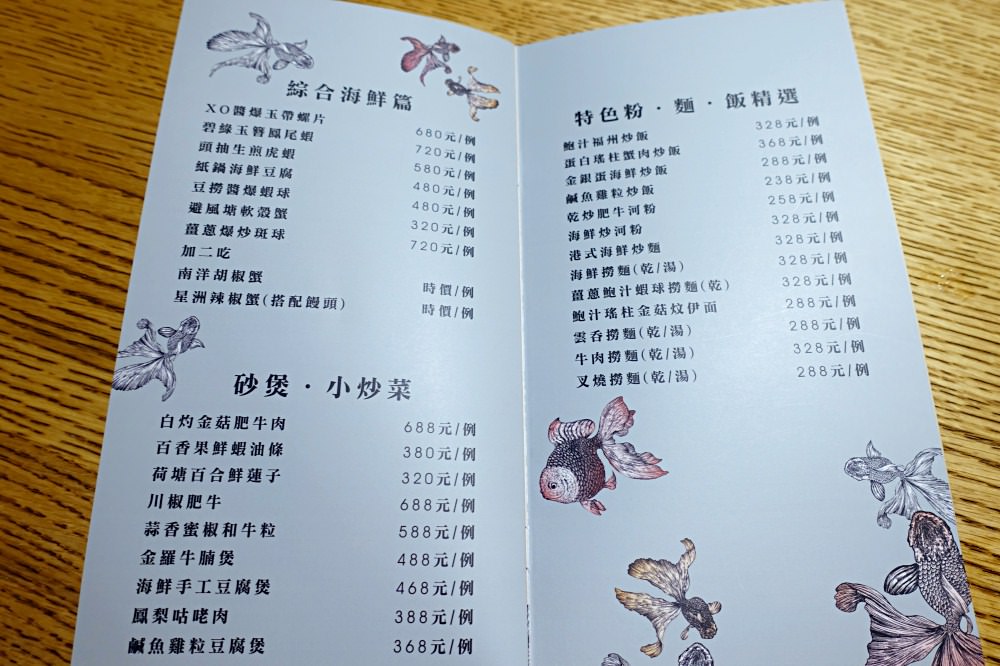 綜合海鮮篇
XO醬爆玉帶螺片 680元/例
碧綠玉簪鳳尾蝦 720元/例
頭抽生煎虎蝦 580元/例
紙鍋海鮮豆腐 480元/例
豆撈醬爆蝦球 480元/例
避風塘軟殼蟹 320元/例
薑蔥爆炒斑球 720元/例
加二吃
南洋胡椒蟹 時價/例
星洲辣椒蟹(搭配饅頭) 時價/例
砂煲・小炒菜
白灼金菇肥牛肉 688元/例
百香果鮮蝦油條 380元/例
荷塘百合鮮蓮子 320元/例
川椒肥牛 688元/例
蒜香蜜椒和牛粒 588元/例
金羅牛腩煲 488元/例
海鮮手工豆腐煲 468元/例
鳳梨咕咾肉 388元/例
鹹魚雞粒豆腐煲 368元/例
特色粉・麵・飯精選
鮑汁福州炒飯 328元/例
蛋白瑤柱蟹肉炒飯 368元/例
金銀蛋海鮮炒飯 288元/例
鹹魚雞粒炒飯 238元/例
乾炒肥牛河粉 258元/例
海鮮炒河粉 328元/例
港式海鮮炒麵 328元/例
海鮮撈麵(乾/湯) 328元/例
薑蔥鮑汁蝦球撈麵(乾) 328元/例
鮑汁瑤柱金菇炆伊面 288元/例
雲吞撈麵(乾/湯) 288元/例
牛肉撈麵(乾/湯) 328元/例
叉燒撈麵(乾/湯) 288元/例